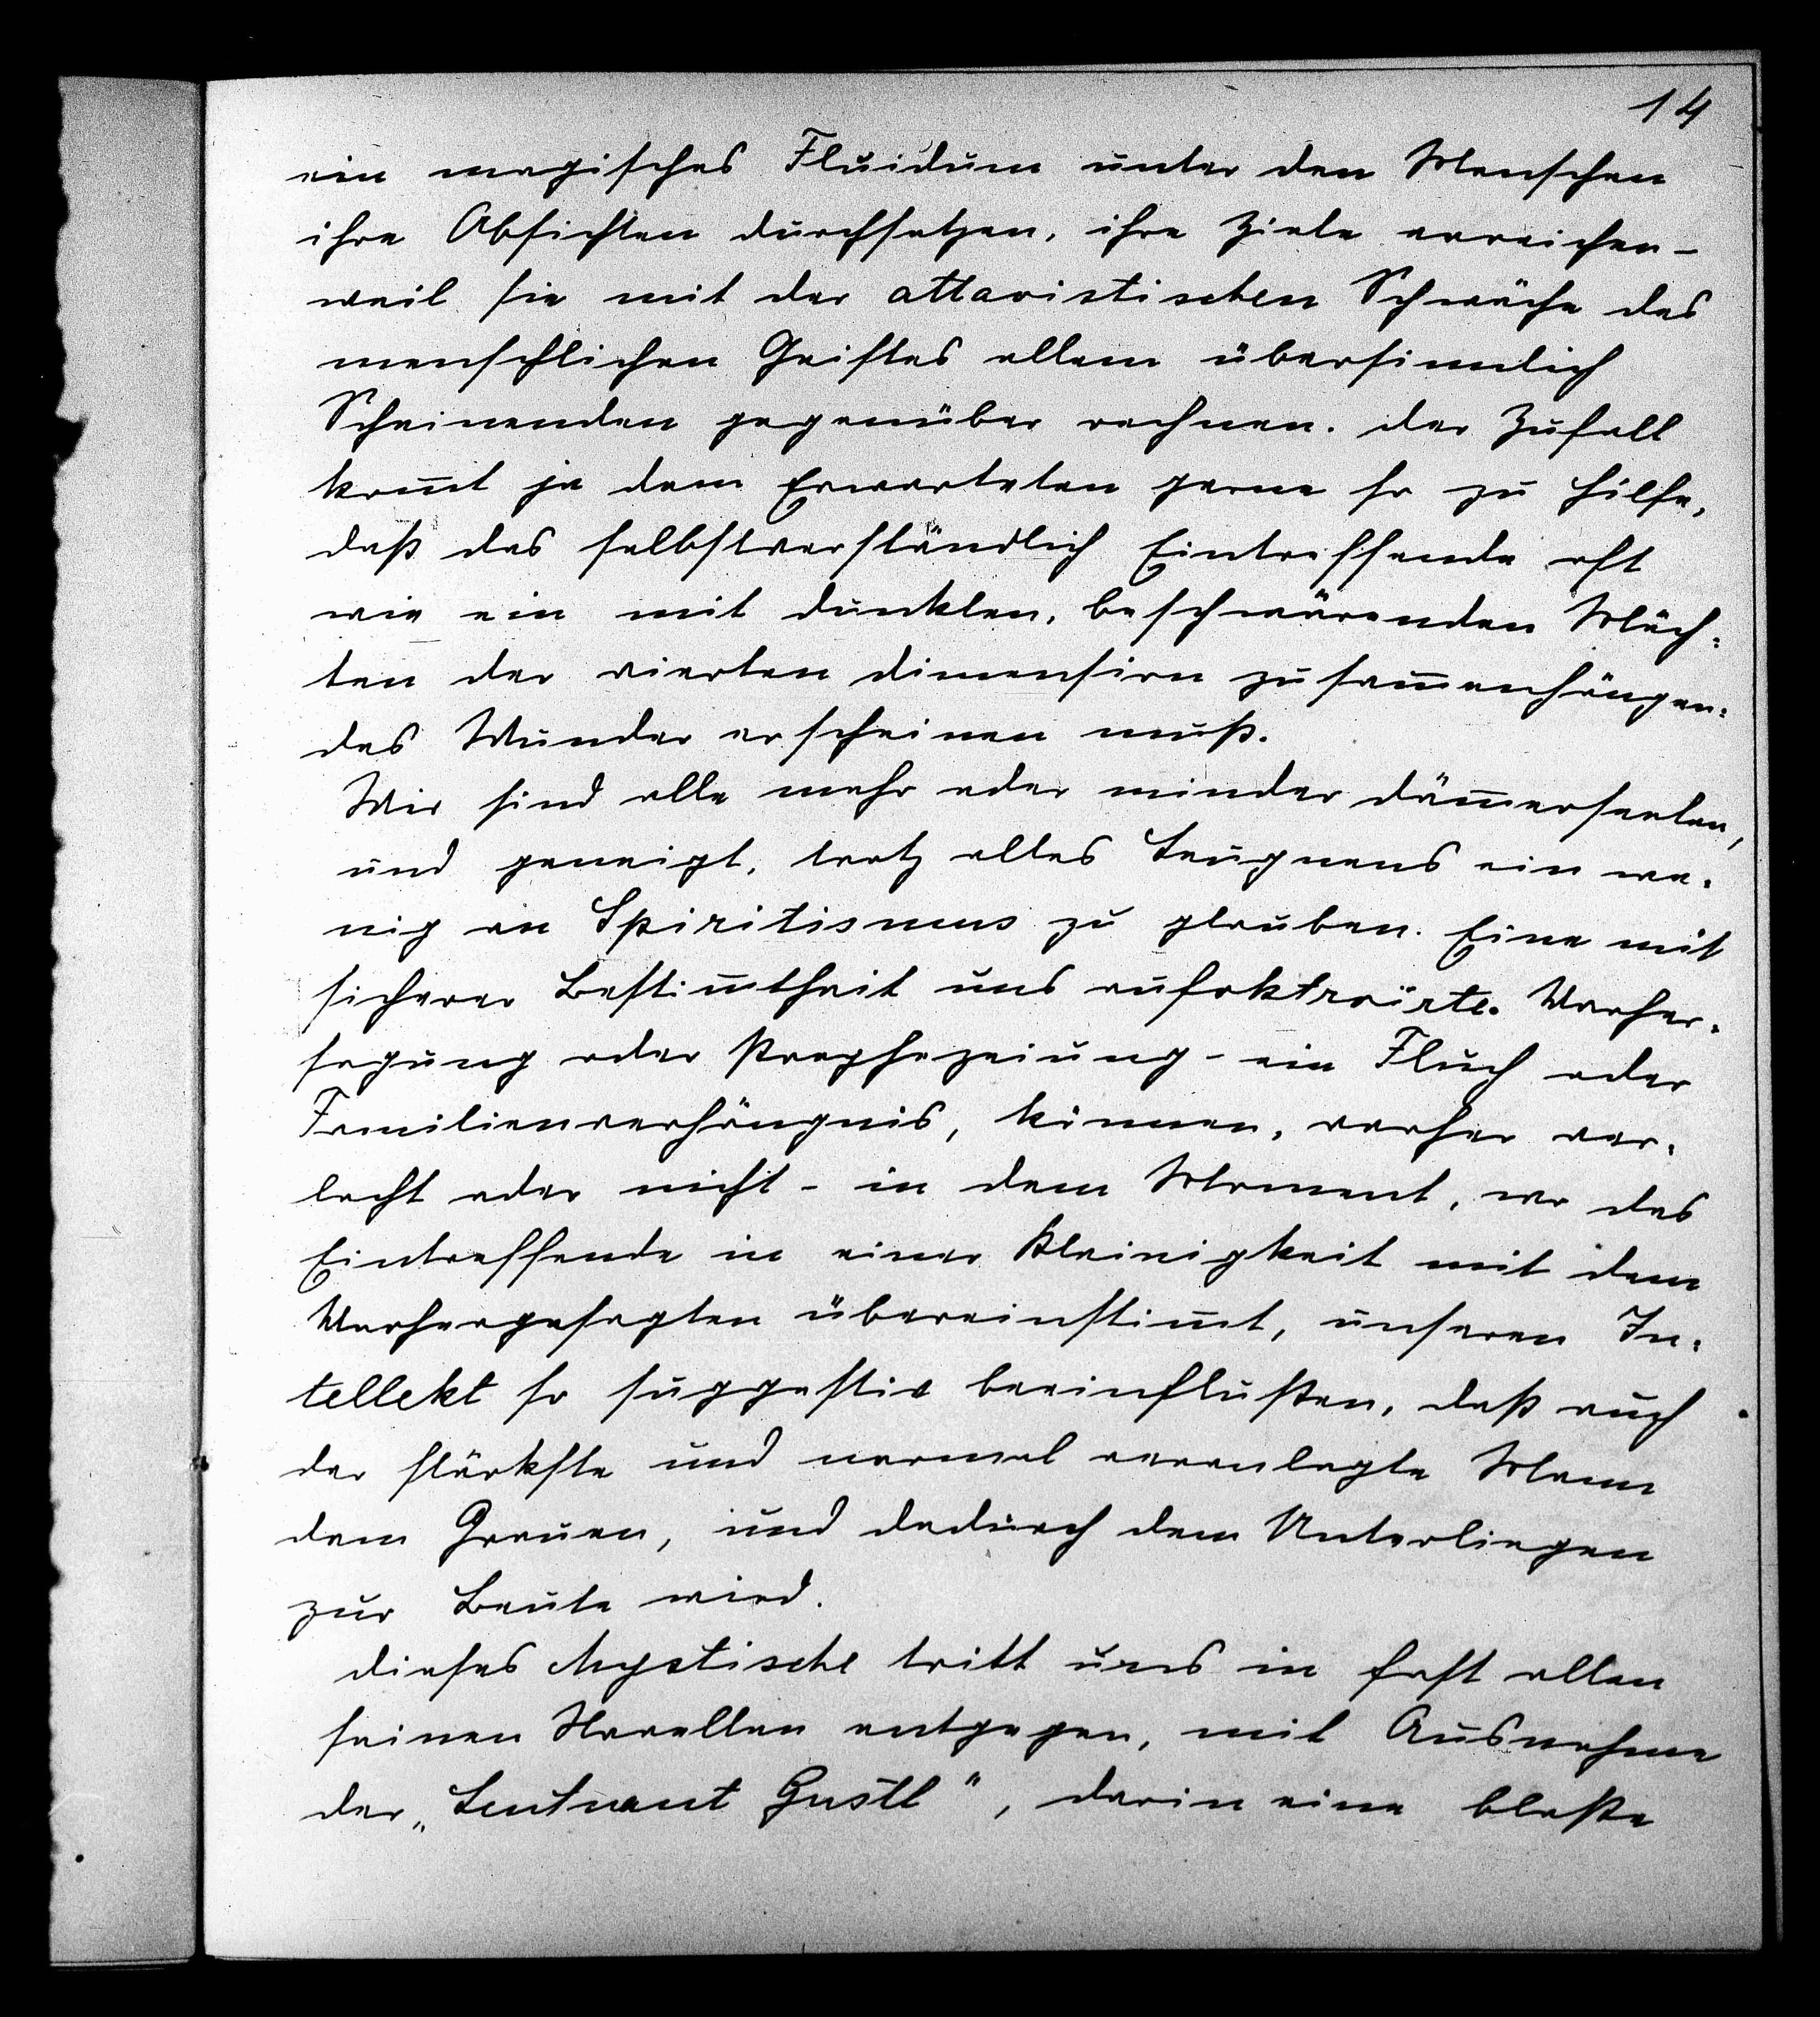 14
ein magisches Fluidum unter den Menschen
ihre Absichten durchsetzen, ihre Ziele erreichen –
weil sie mit der attavistischen Schwäche des
menschlichen Geistes allem übersinnlich
Scheinenden gegenüber rechnen. Der Zufall
kom̄t ja dem Erwarteten gerne so zu Hilfe,
daß das selbstverständlich Eintreffende oft
wie ein mit dunklen, beschwörenden Mäch-
ten der vierten Dimension zusam̄enhängen-
des Wunder erscheinen muß.
Wir sind alle mehr oder minder Däm̄erseelen,
und geneigt, trotz alles Leugnens ein we-
nig an Spiritismus zu glauben. Eine mit
sicherer Bestim̄theit uns aufoktroirte. Vorher-
sagung oder Prophezeiung – ein Fluch oder
Familienverhängnis, können, vorher ver-
lacht oder nicht – in dem Moment, wo das
Eintreffende in einer Kleinigkeit mit dem
Vorhergesagten übereinstim̄t, unseren In-
tellekt so suggestiv beeinflußen, daß auch
der stärkste und normal veranlagte Mann
dem Grauen, und dadurch dem Unterliegen
zur Beute wird.
Dieses Mystische tritt uns in fast allen
seinen Novellen entgegen, mit Ausnahme
der „Leutnant Gustl", darin eine blaße